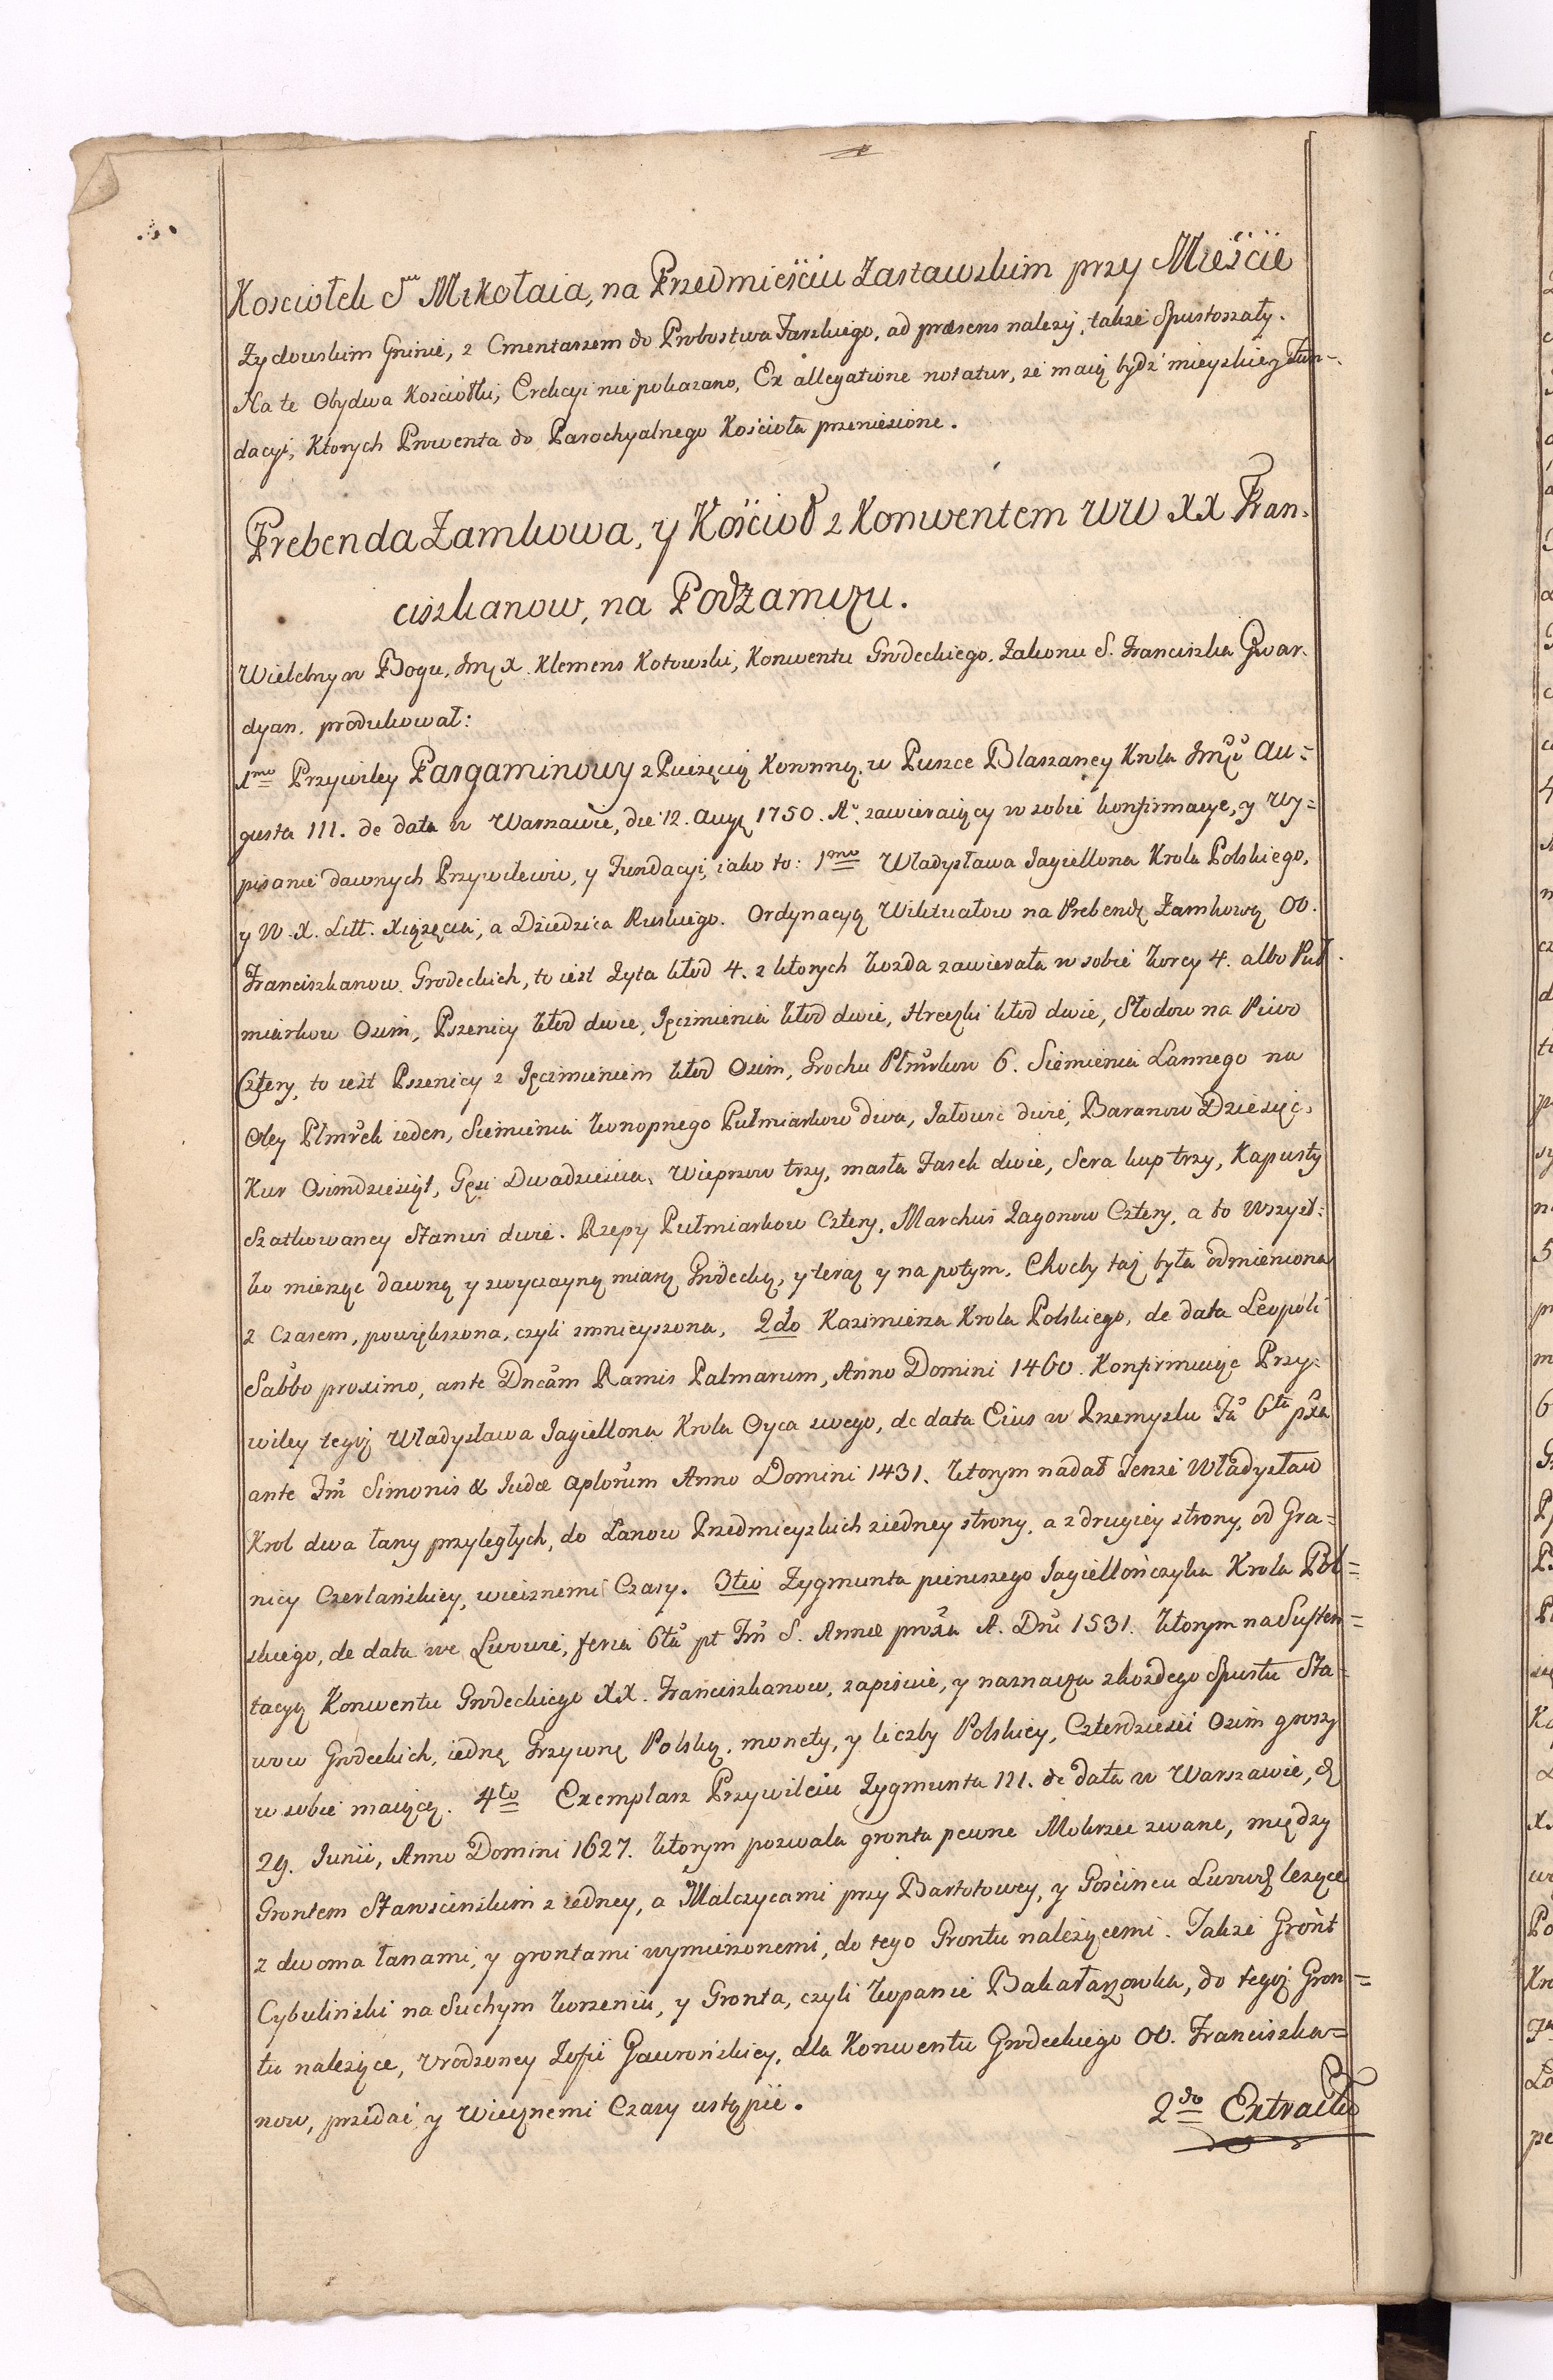 Kosciołek Sgo Mikołaia, na Przedmieściu Zastawskim przy Mieście
Zydowskim Gninie, z Cmentarzem do Probostwa Farskiego, ad præsens nalezy, takze Spustoszały.
Na te Obydwa Kościołki, Erekcyi nie pokazano, Ex allegatione notatur, ze maią bydź mieyskiey Fun-
dacyi, Ktorych Prowenta do Parochyalnego Kościoła przeniesione.
Prebenda Zamkowa, y Kościoł z Konwentem WW XX Fran-
ciszkanow, na Podzamczu.
Wielebny w Bogu, Jmć X. Klemens Kotowski, Konwentu Grodeckiego, Zakonu S. Franciszka Gwar-
dyan, produkował:
1mo Przywiley Pargaminowy z Pieczęcią Koronną, w Puszce Blaszaney Krola Jmći Au=
gusta III. de data w Warszawie, die 12. Augi 1750. A. zawieraiący w sobie konfirmacye, y wy=
pisanie dawnych Przywilewiu, y Fundacyi, iako to: 1mo Władysława Jagiellona Krola Polskiego,
y W. X. Litt. Xiązęcia, a Dziedzica Ruskiego. Ordynacyą Wiktuałow na Prebendę Zamkową OO.
Franciszkanow Grodeckich, to iest Zyta kłod 4. z ktorych kozda zawierała w sobie korcy 4. albo Puł
miarkow Osim, Pszenicy kłod dwie, Jęczmienia kłod dwie, Hreczki kłod dwie, Słodow na Piwo
Cztery, to iest Pszenicy z Jęczmieniem kłod Osim, Grochu Płmrkow 6. Siemienia Lannego na
Oley Płmrek ieden, Siemienia konopnego Pułmiarkow dwa, Jałowic dwie, Baranow Dziesięć,
Kur Osimdziesiąt, Gęsi Dwadziescia, Wieprzow trzy, masła Fasek dwie, Sera kup trzy, Kapusty
Szatkowaney Stanwi dwie. Rzepy Pułmiarkow Cztery, Marchwi Zagonow Cztery, a to wszyst=
ko mierząc dawną y zwyczayną miarą Grodecką, y teraz y na potym, Choćby taż była odmieniona
z Czasem, powiększona, czyli zmnieyszona, 2do Kazimierza Krola Polskiego, de data Leopoli
Sabbo proximo, ante Dncam Ramis Palmarum, Anno Domini 1460. Konfirmuiąc Przy-
wiley tegoż Władysława Jagiellona Krola Oyca swego, de data Eius w Przemyslu Fa 6ta pxa
ante Fm Simonis & Judæ Aplorum Anno Domini 1431. ktorym nadał Tenze Władysław
Krol dwa łany przyległych, do Łanow Przedmieyskich z iedney strony, a z drugiey strony, od Gra=
nicy Czerlańskiey, wiecznemi Czasy. 3tio Zygmunta pierwszego Jagiellończyka Krola Pol=
skiego, de data we Lwowie, feria 6ta pt Fm S. Annæ proxa A. Dni 1531. ktorym na Susten=
tacyą Konwentu Grodeckiego XX. Franciszkanow, zapisuie, y naznacza z kozdego Spustu Sta-
wow Grodeckich, iednę Grzywnę Polską, monety, y liczby Polskiey, Czterdzieści Osim groszy
w sobie maiącą. 4to Exemplarz Przywileiu Zygmunta III. de data w Warszawie, d.
29. Junii, Anno Domini 1627. ktorym pozwala gronta pewne Mokrzec zwane, między
Grontem Stawscinskim z iedney, a Malczycami przy Bartotowey, y Gościncu Lwowsk lezące
z dwoma łanami, y grontami wymienionemi, do tego Grontu nalezącemi. Takze Gront
Cybuliński na Suchym korzeniu, y Gronta, czyli kopanie Bakałarzowka, do tegoż Gron=
tu nalezące, Urodzoney Zofii Gawrońskiey, dla Konwentu Grodeckiego OO. Franciszka=
now, przedać y Wiecznemi Czasy ustąpić.
2do Extractu